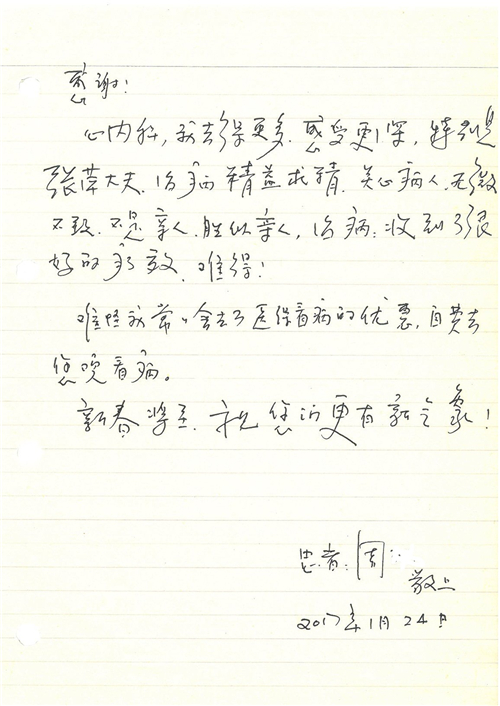 感谢!
心内科,我去得更多,感受更深,特别是
张萍大夫,治病精益求精,关心病人,无微
不致,不是亲人,胜似亲人,治病:收到了很
好的疗效,难得!
难怪我常舍去了医保看病的优惠,自费去
您院看病。
新春将至,祝您们更有新气象!
患者:周
敬上
2017年1月24日